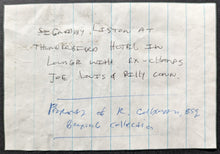 SEGNDDY. LISTON AT
THUNDERBIRD HOTEL IN
LOUNGE WITH EX-CHAMPS
JOE LOUIS & BILLY CONN.
Property of R. Coleman, ESQ
Boxing Collection